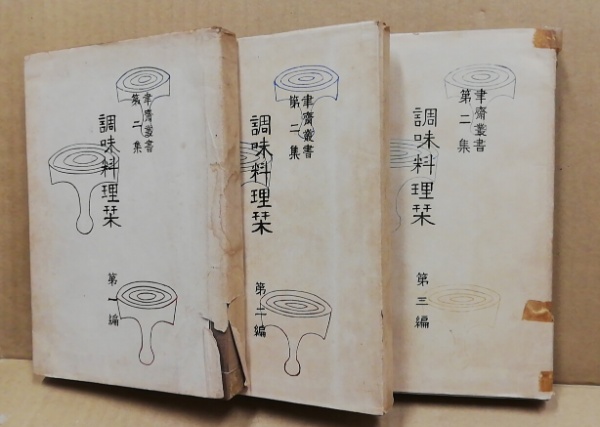 聿齋叢書
第二集
調味料理栞
第一編
聿齋叢書
第二集
調味料理栞
第二編
聿齋叢書
第二集
調味料理栞
第三編